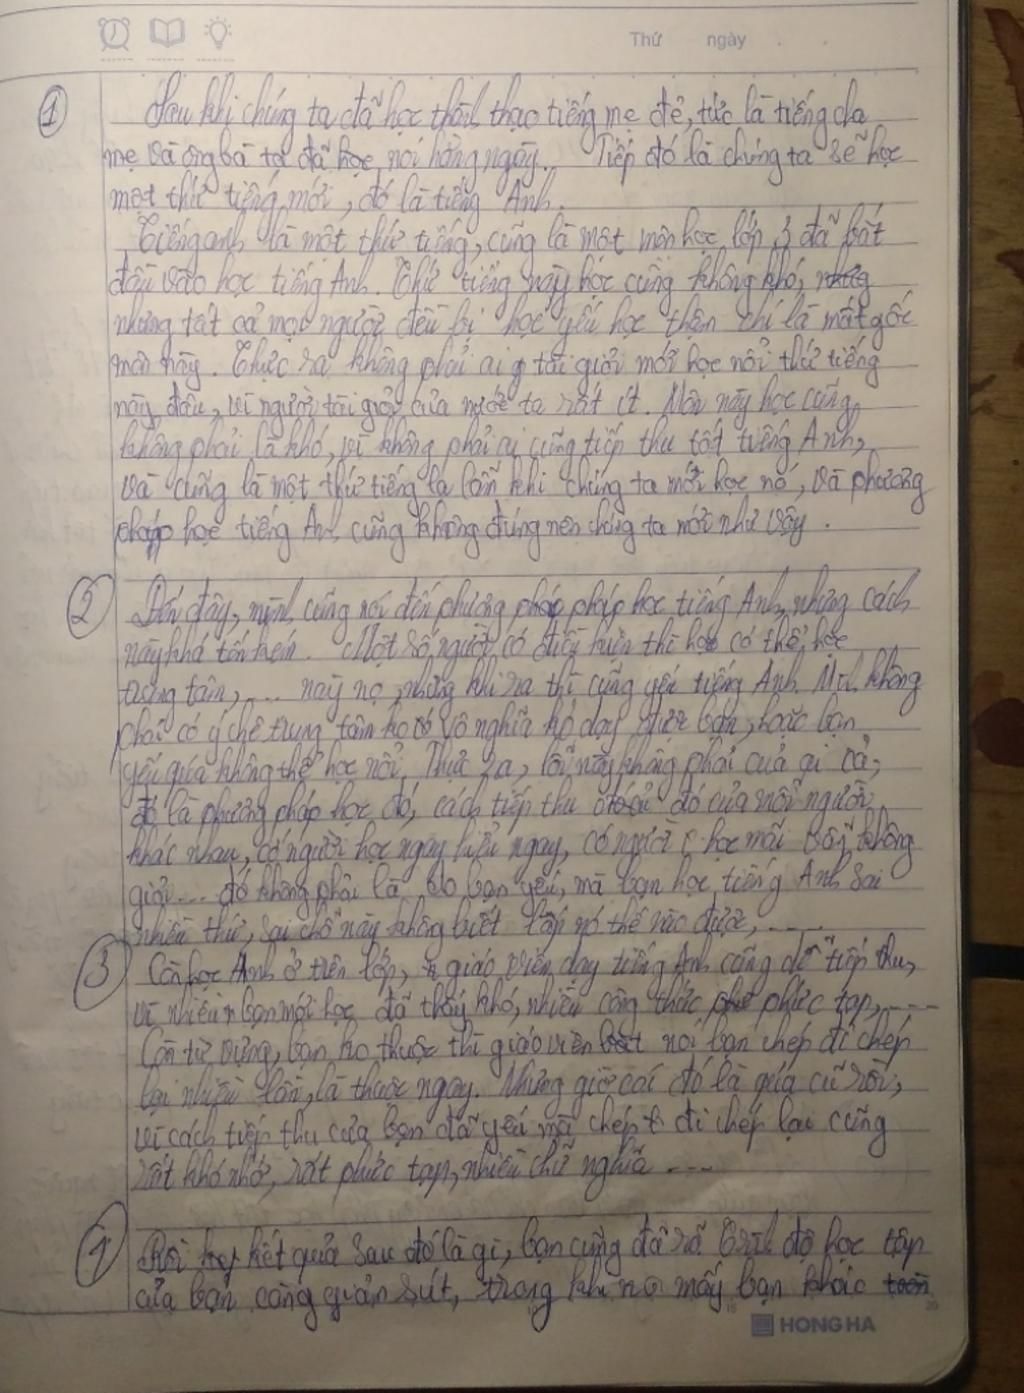 Thứ ngày
① Sau khi chúng ta đã học thành thạo tiếng mẹ đẻ, tức là tiếng cha
mẹ và ông bà ta đã học, nói hằng ngày. Tiếp đó là chúng ta sẽ học
một thứ tiếng mới, đó là tiếng Anh.
Tiếng anh là một thứ tiếng, cũng là một môn học, lớp 3 đã bắt
đầu vào học tiếng Anh. Thứ tiếng này học cũng không khó,
nhưng tất cả mọi người đều bị học yếu học thậm chí là mất gốc
môn này. Thực ra không phải ai tài giỏi mới học nổi thứ tiếng
này đâu, vì người tài giỏi của nước ta rất ít. Môn này học cũng
không phải là khó, vì không phải ai cũng tiếp thu tốt tiếng Anh,
và cũng là một thứ tiếng lạ lẫm khi chúng ta mới học nó, và phương
pháp học tiếng Anh cũng không đúng nên chúng ta mới như vậy.
② Đến đây, mình cũng nói đến phương pháp học tiếng Anh, nhưng cách
này khá tốn kém. Một số người có điều kiện thì học có thể học
trung tâm,... này nọ, nhưng khi ra thì cũng yếu tiếng Anh. Mình không
phải có ý chê trung tâm vô nghĩa ko dạy được bạn, hoặc bạn
yếu quá không thể học nổi. Thực ra, lỗi này không phải của ai cả,
đó là phương pháp học đó, cách tiếp thu đó của mỗi người
khác nhau, có người học ngay hiểu ngay, có người học mãi vẫn không
giỏi... đó không phải là do bạn yếu, mà bạn học tiếng Anh sai
nhiều thứ, sai chỗ này không biết lấp nó thế nào được, ....
③ Còn học Anh ở trên lớp, giáo viên dạy tiếng Anh cũng dễ tiếp thu,
vì nhiều bạn mới học đã thấy khó, nhiều công thức phức tạp, ....
Còn từ vựng, bạn ko thuộc thì giáo viên nói bạn chép đi chép
lại nhiều lần, là thuộc ngay. Nhưng giờ cái đó là quá cũ rồi,
vì cách tiếp thu của bạn đã yếu mà chép đi chép lại cũng
rất khó nhớ, rất phức tạp, nhiều chữ nghĩa ....
Rồi kết quả sau đó là gì, bạn cũng đã rõ. Trình độ học tập
của bạn càng giảm sút, trong khi mấy bạn khác
HONG HA